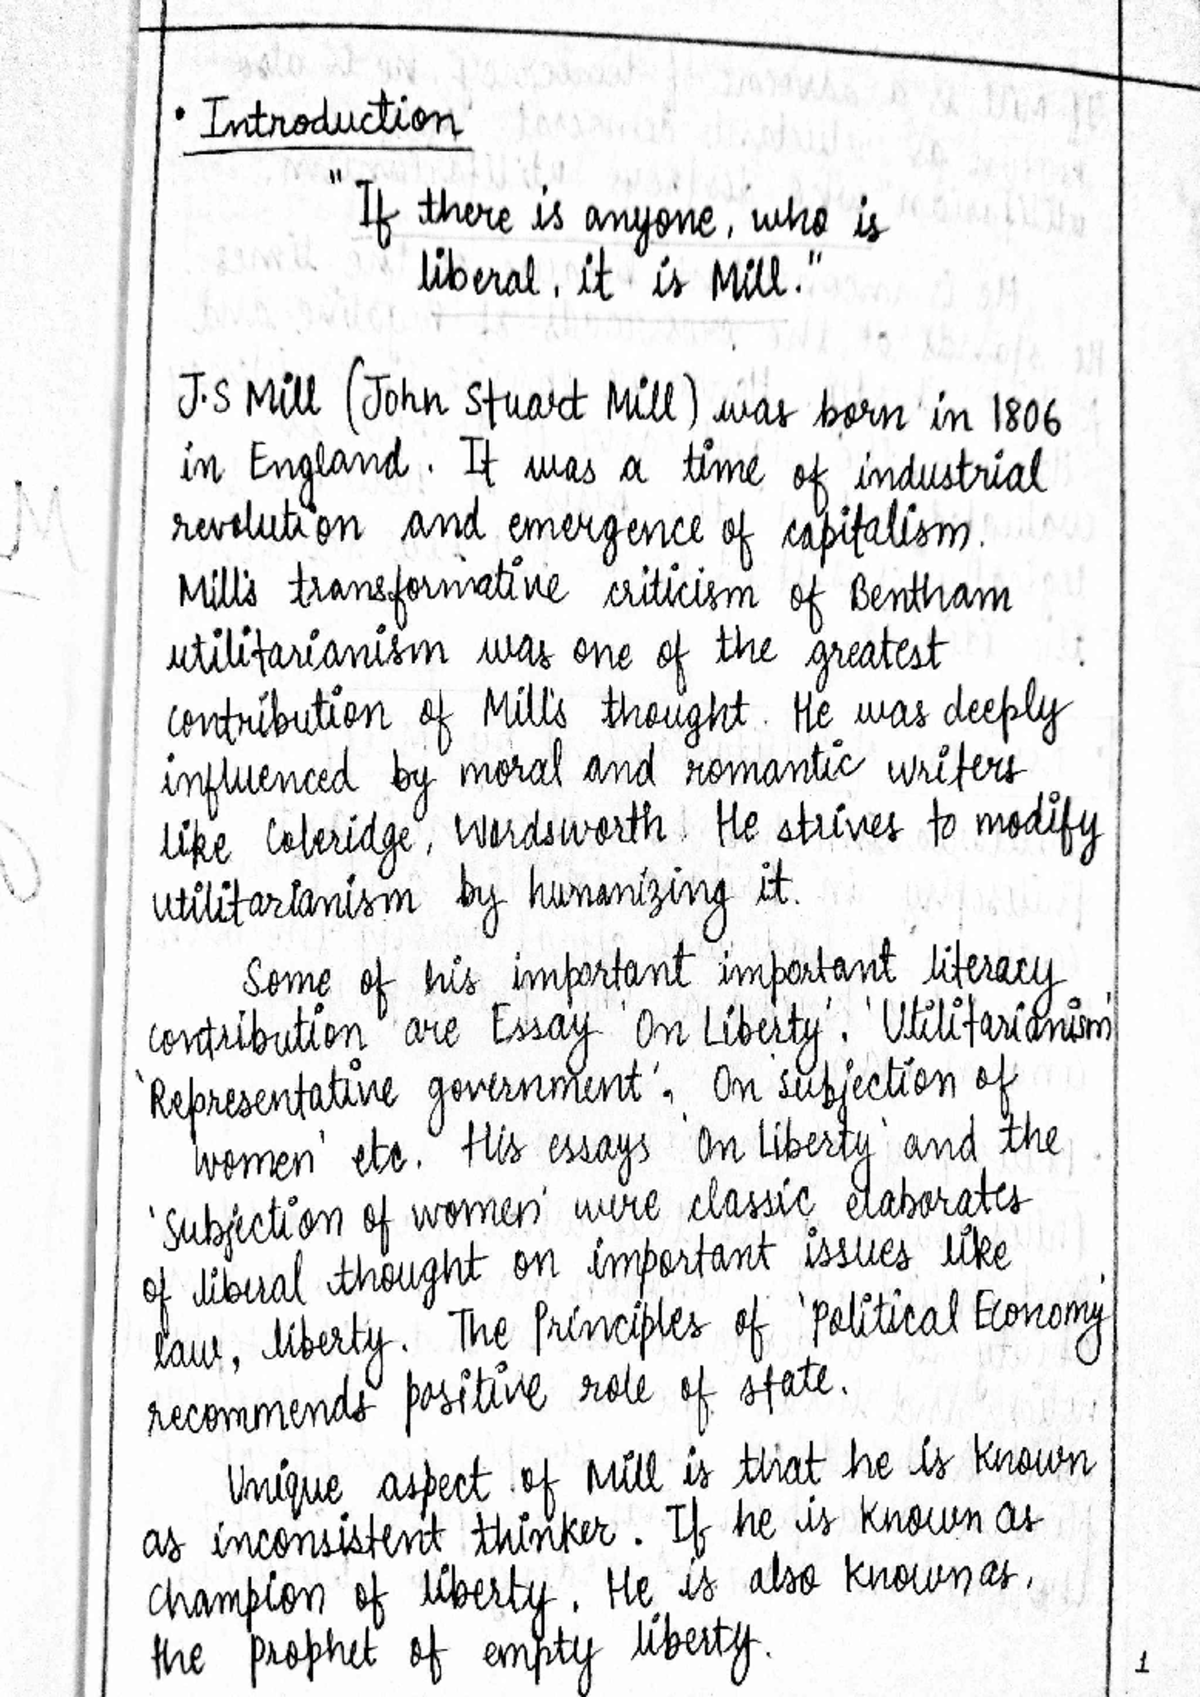 • Introduction
" If there is anyone, who is
liberal, it is Mill."
J.S Mill (John Stuart Mill) was born in 1806
in England. It was a time of industrial
revolution and emergence of capitalism.
Mill's transformative criticism of Bentham
utilitarianism was one of the greatest
contribution of Mill's thought. He was deeply
influenced by moral and romantic writers
like Coleridge, Wordsworth. He strives to modify
utilitarianism by humanizing it.
Some of his important important literacy
contribution are Essay 'On Liberty', 'Utilitarianism'
'Representative government', On Subjection of
women' etc. His essays 'On Liberty' and the
'Subjection of women' were classic elaborates
of liberal thought on important issues like
law, liberty. The Principles of 'Political Economy'
recommends positive role of state.
Unique aspect of Mill is that he is known
as inconsistent thinker. If he is known as
champion of liberty, He is also known as,
the prophet of empty liberty.
1